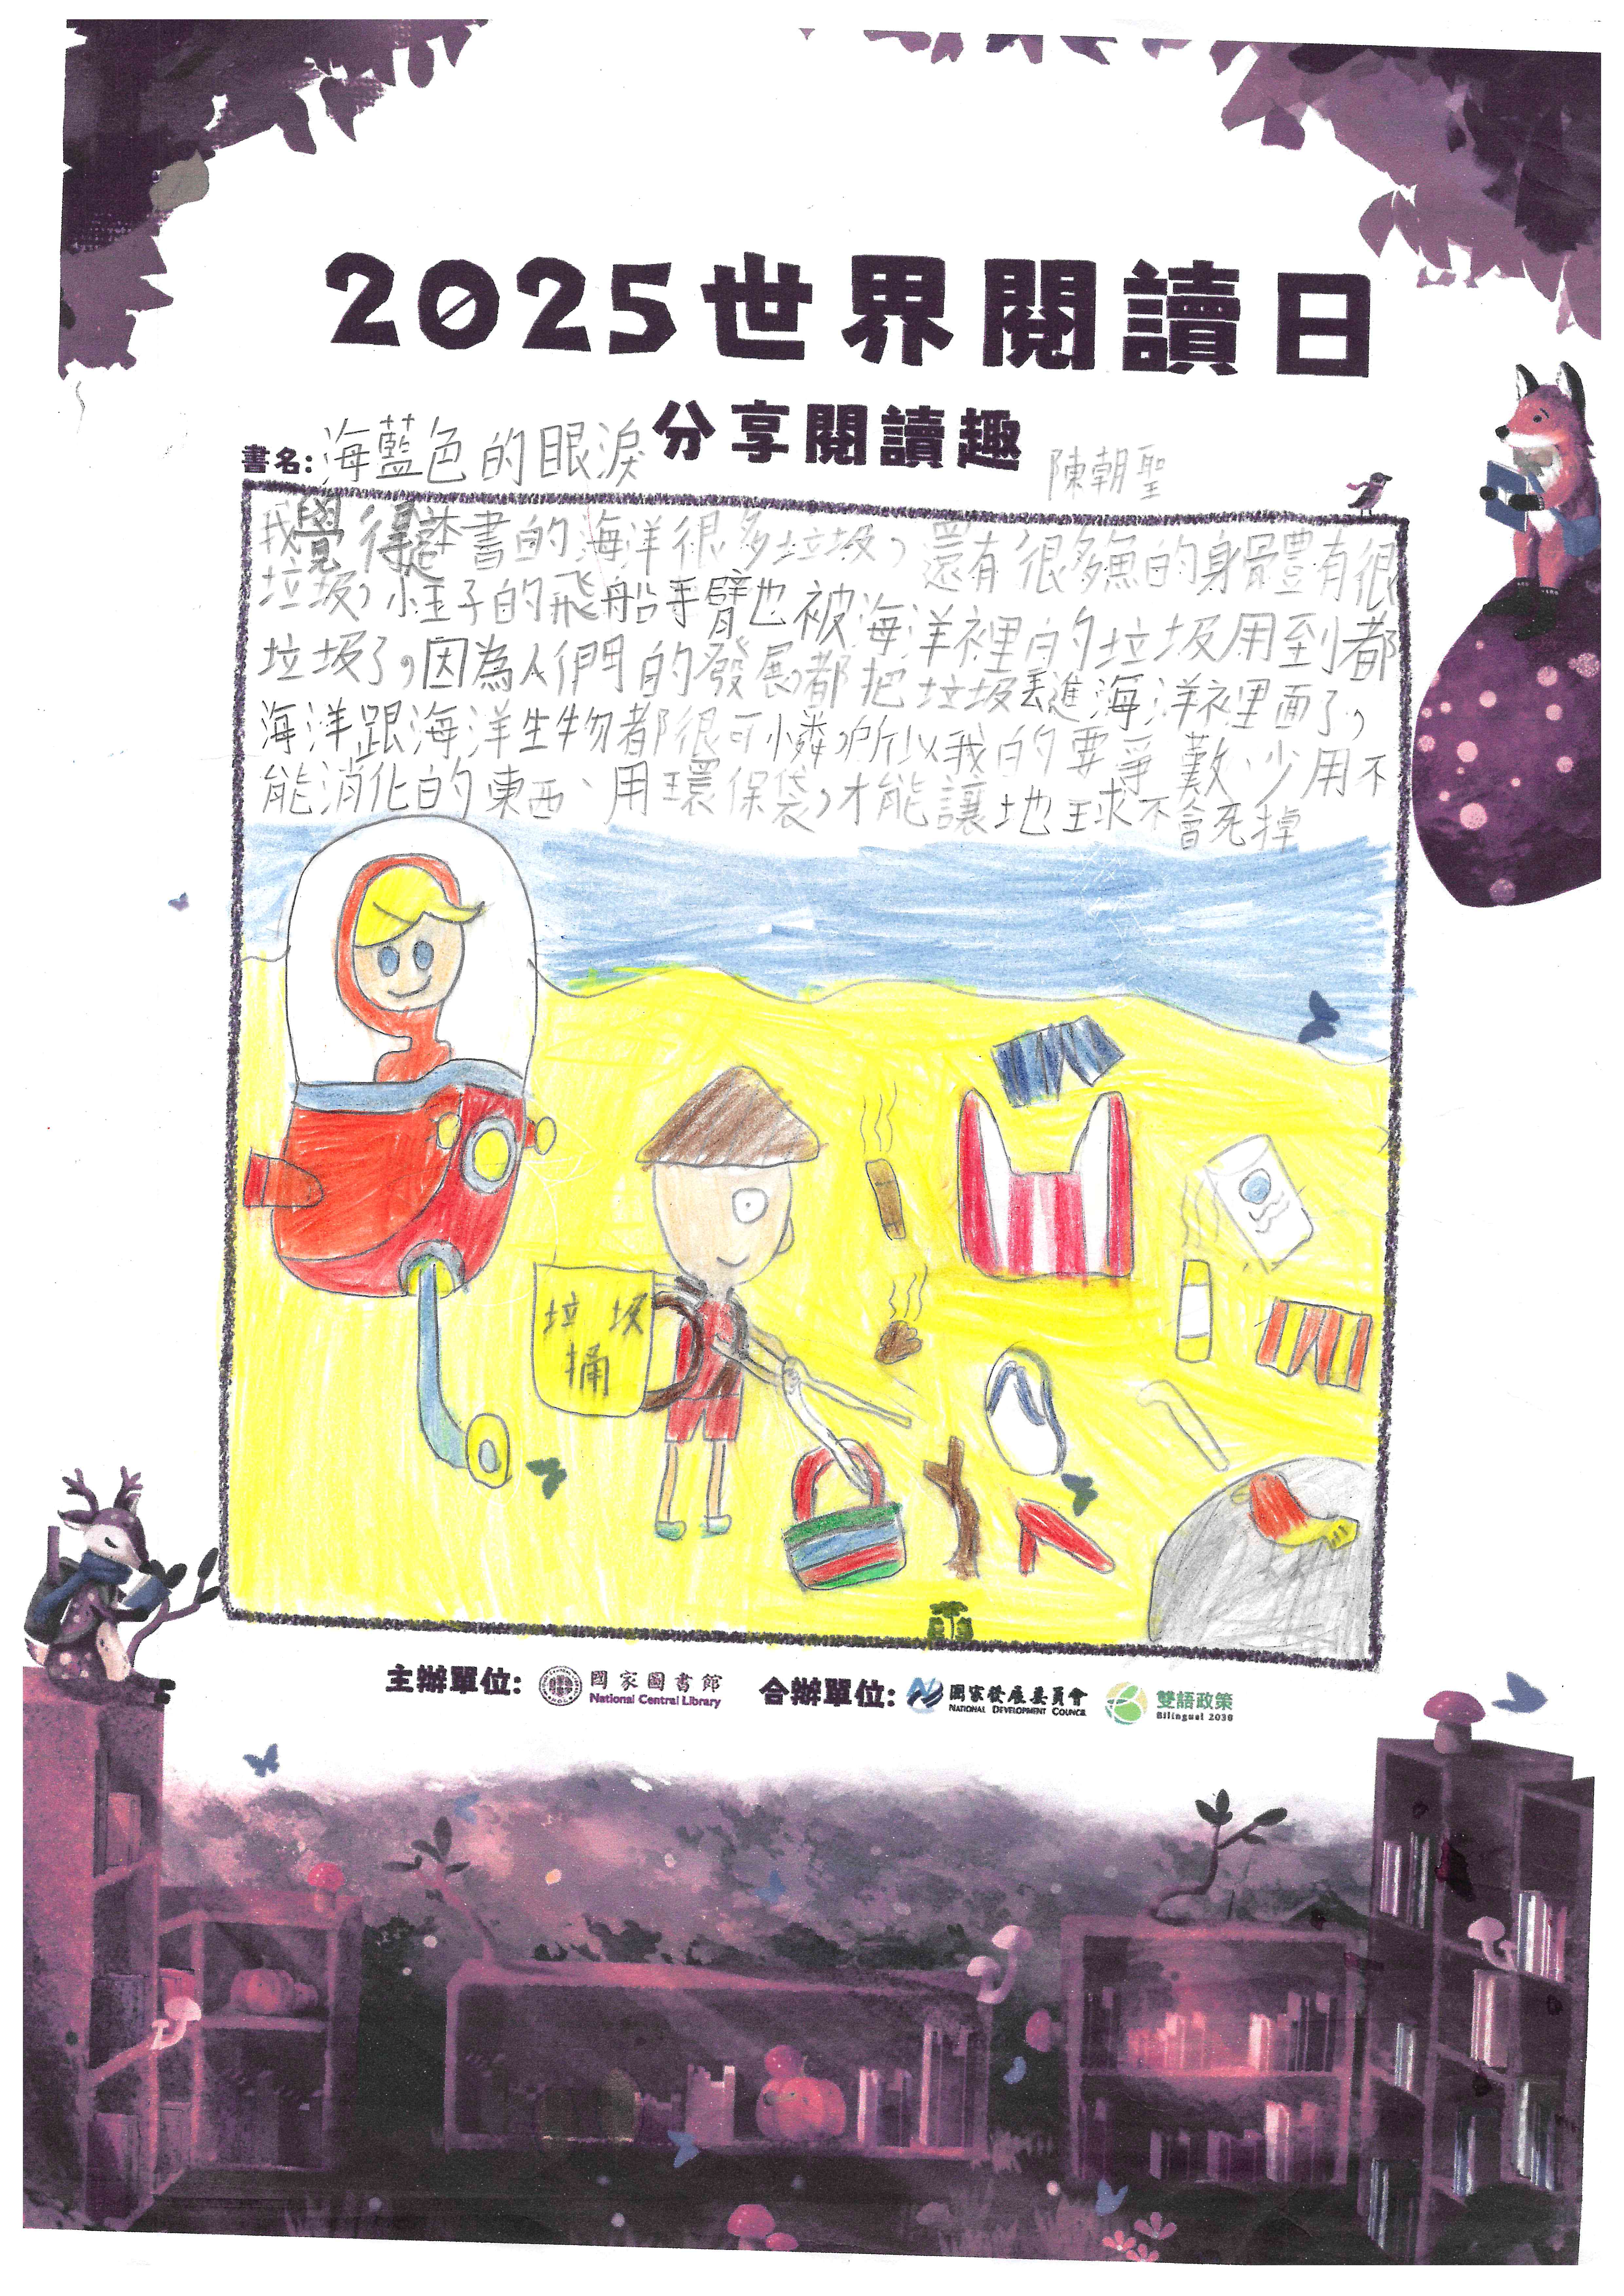 2025世界閱讀日
分享閱讀趣
書名:海藍色的眼淚
陳朝聖
我覺得這本書的海洋很多垃圾,還有很多魚的身體有很
垃圾,小王子的飛船手臂也被海洋裡的垃圾用到都
垃圾了,因為人們的發展,都把垃圾丟進海洋裡面了,
海洋跟海洋生物都很可憐,所以我的要爭數、少用不
能消化的東西、用環保袋,才能讓地球不會死掉
垃圾
桶
主辦單位: 國家圖書館 合辦單位: 國家發展委員會 雙語政策
National Central Library NATIONAL DEVELOPMENT COUNCIL Bilingual 2030